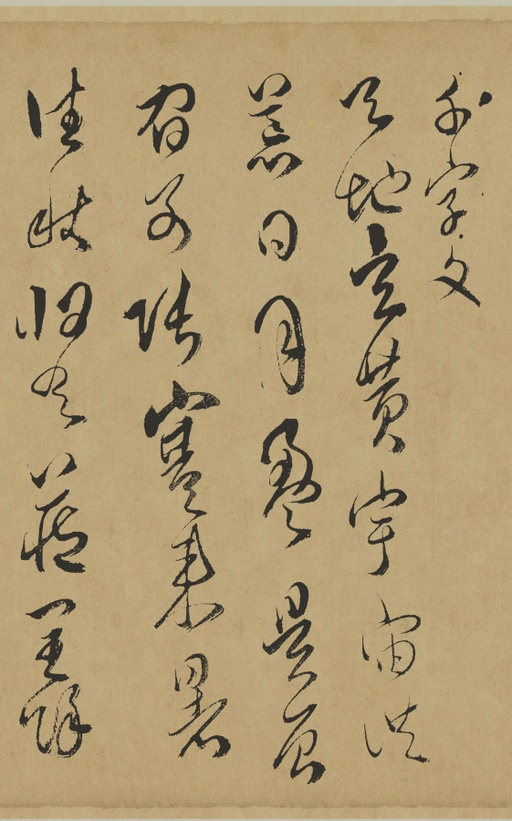 千字文
天地玄黃宇宙洪
荒日月盈昃辰
宿列張寒來暑
往秋收冬藏閏餘